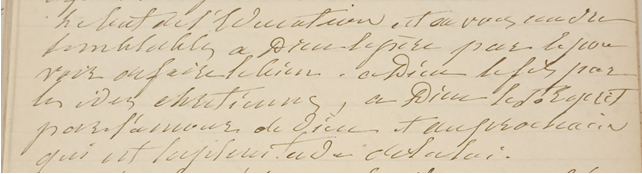 Le but de l'Education est de vous rendre
semblables a Dieu le père par le pou
voir de faire le bien. a Dieu le fils par
les idées chrétiennes, a Dieu le St Esprit
par l'amour de Dieu et du prochain
qui est la plénitude de la loi.